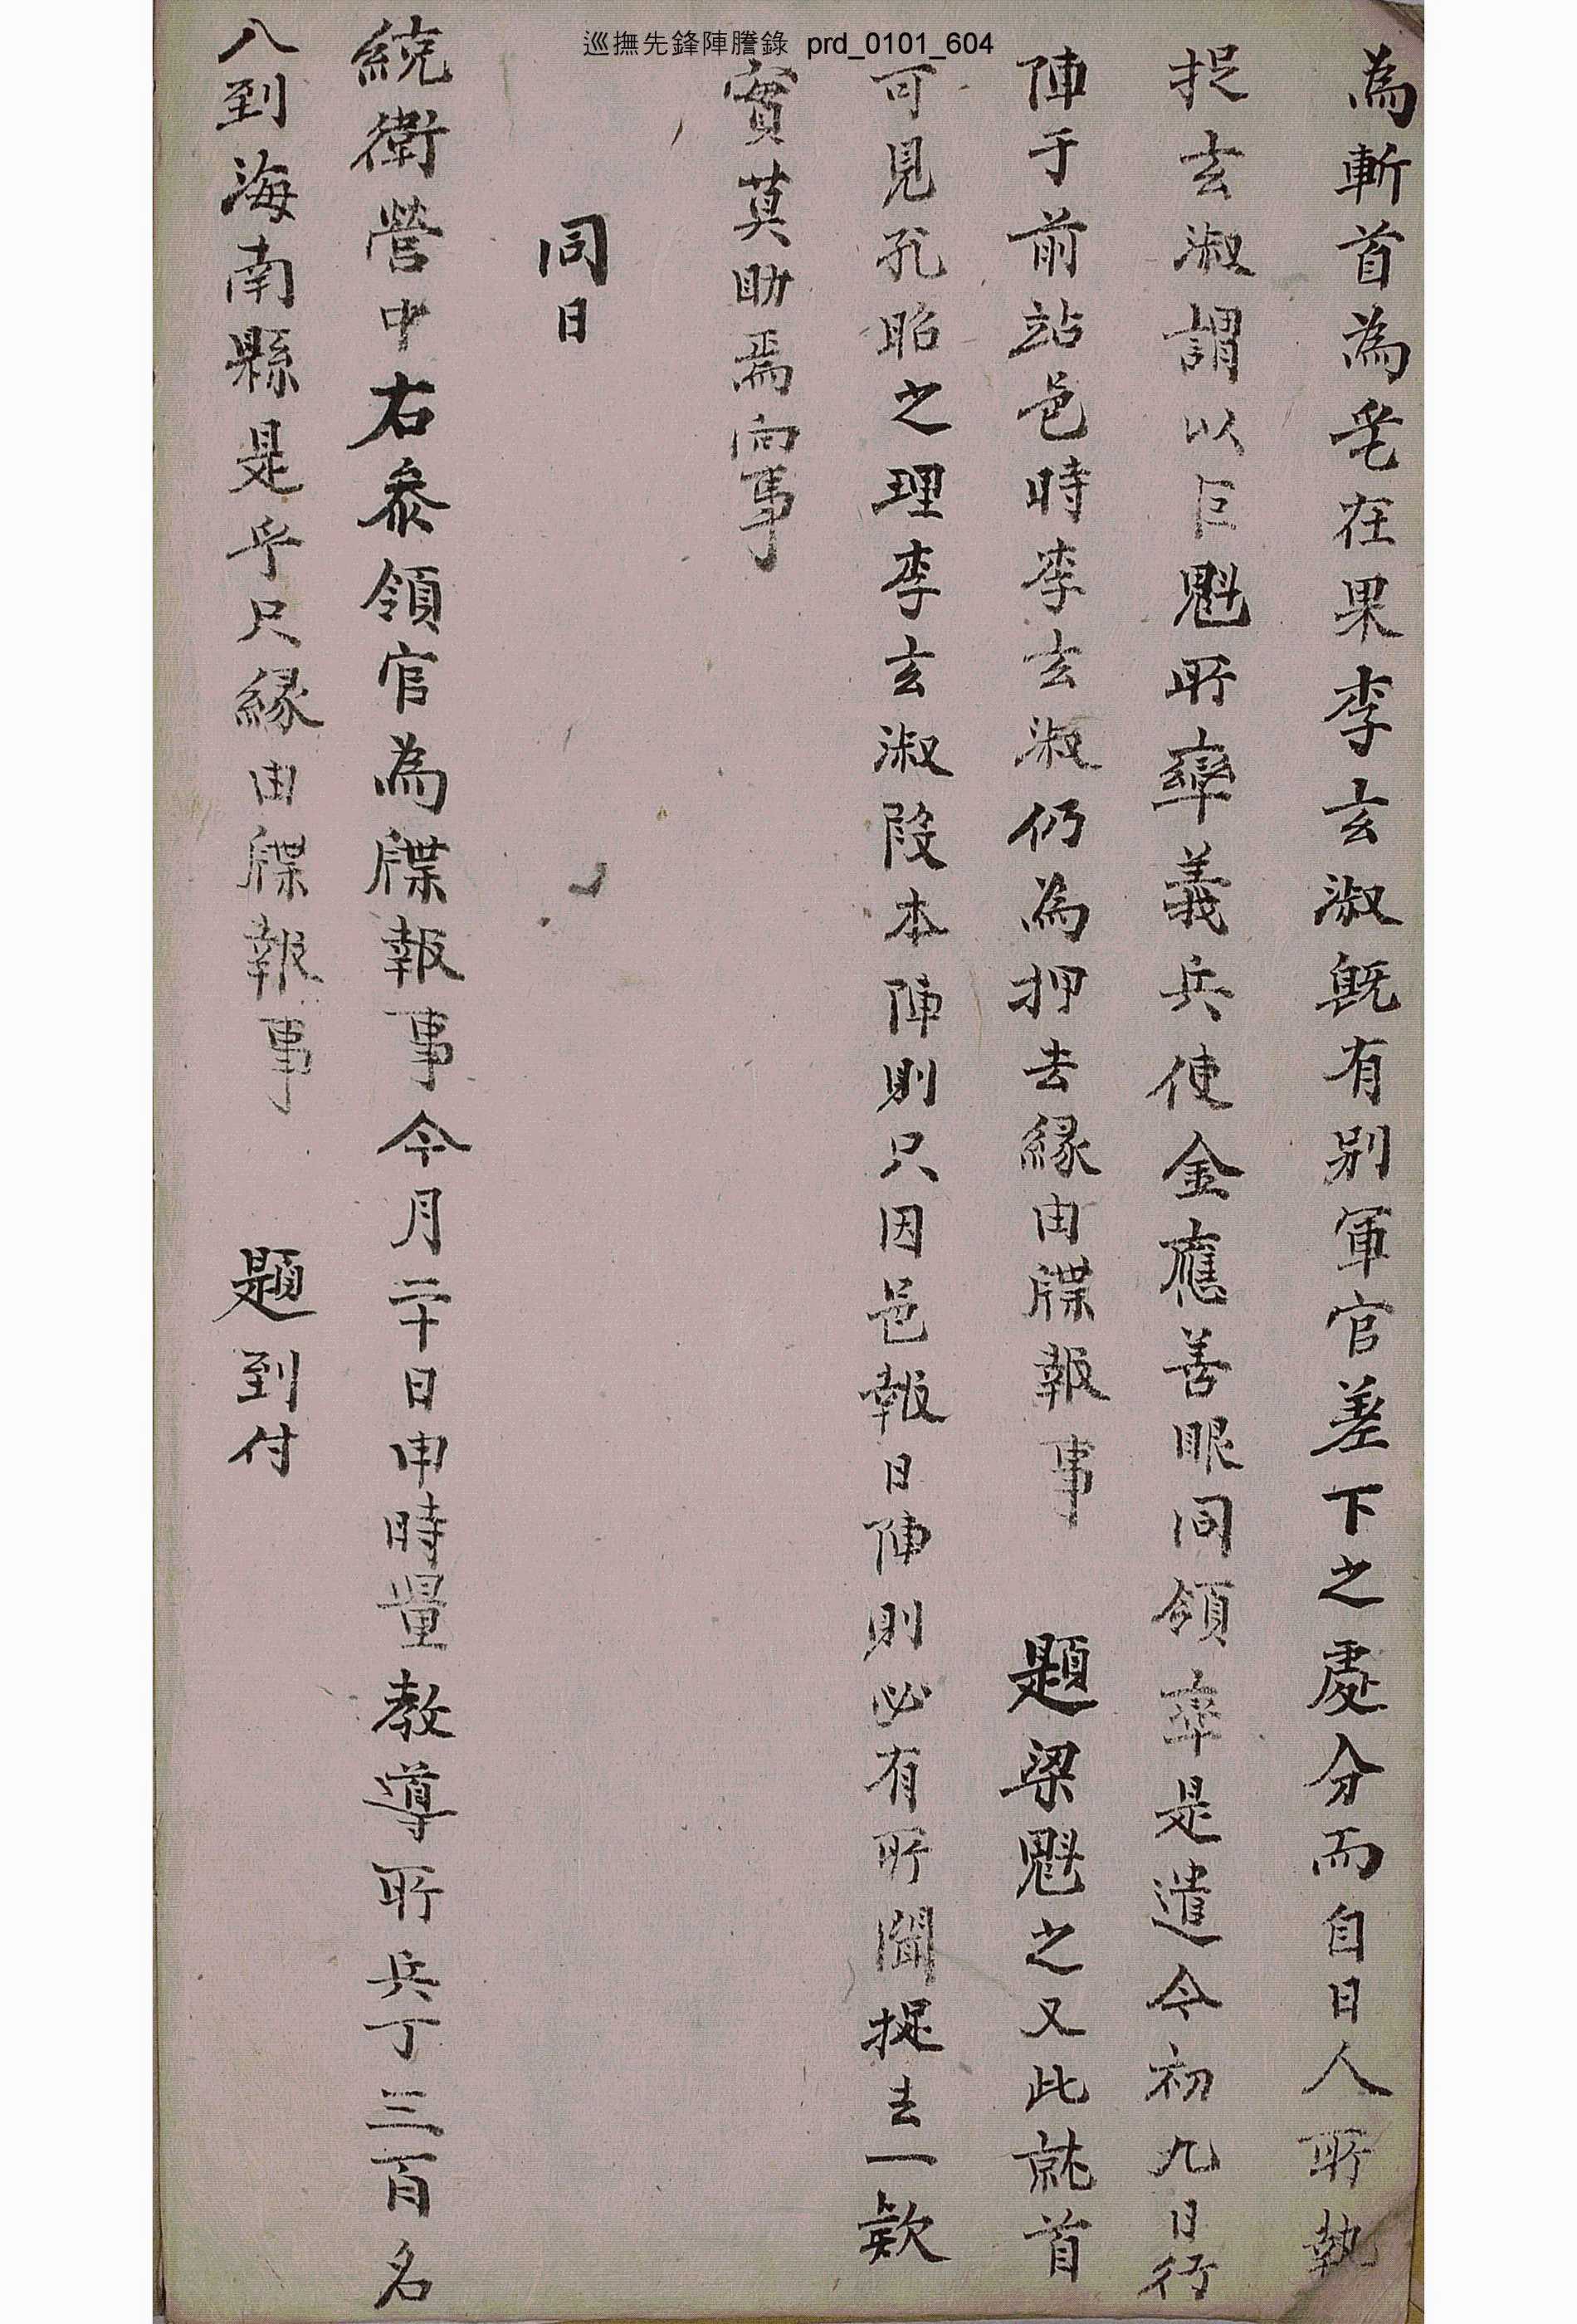 巡撫先鋒陣謄錄 prd_0101_604
為斬首為乎在果李玄淑旣有別軍官差下之處分而自日人所執
捉玄淑謂以巨魁所率義兵使金應善眼同領率是遣今初九日行
陣于前站邑時李玄淑仍為押去緣由牒報事 題梁魁之又此就首
可見孔昭之理李玄淑段本陣則只因邑報日陣則必有所聞捉去一欵
實莫助焉向事
同日
統衛營中右叅領官為牒報事今月二十日申時量敎導所兵丁三百名
入到海南縣是乎尺緣由牒報事 題到付